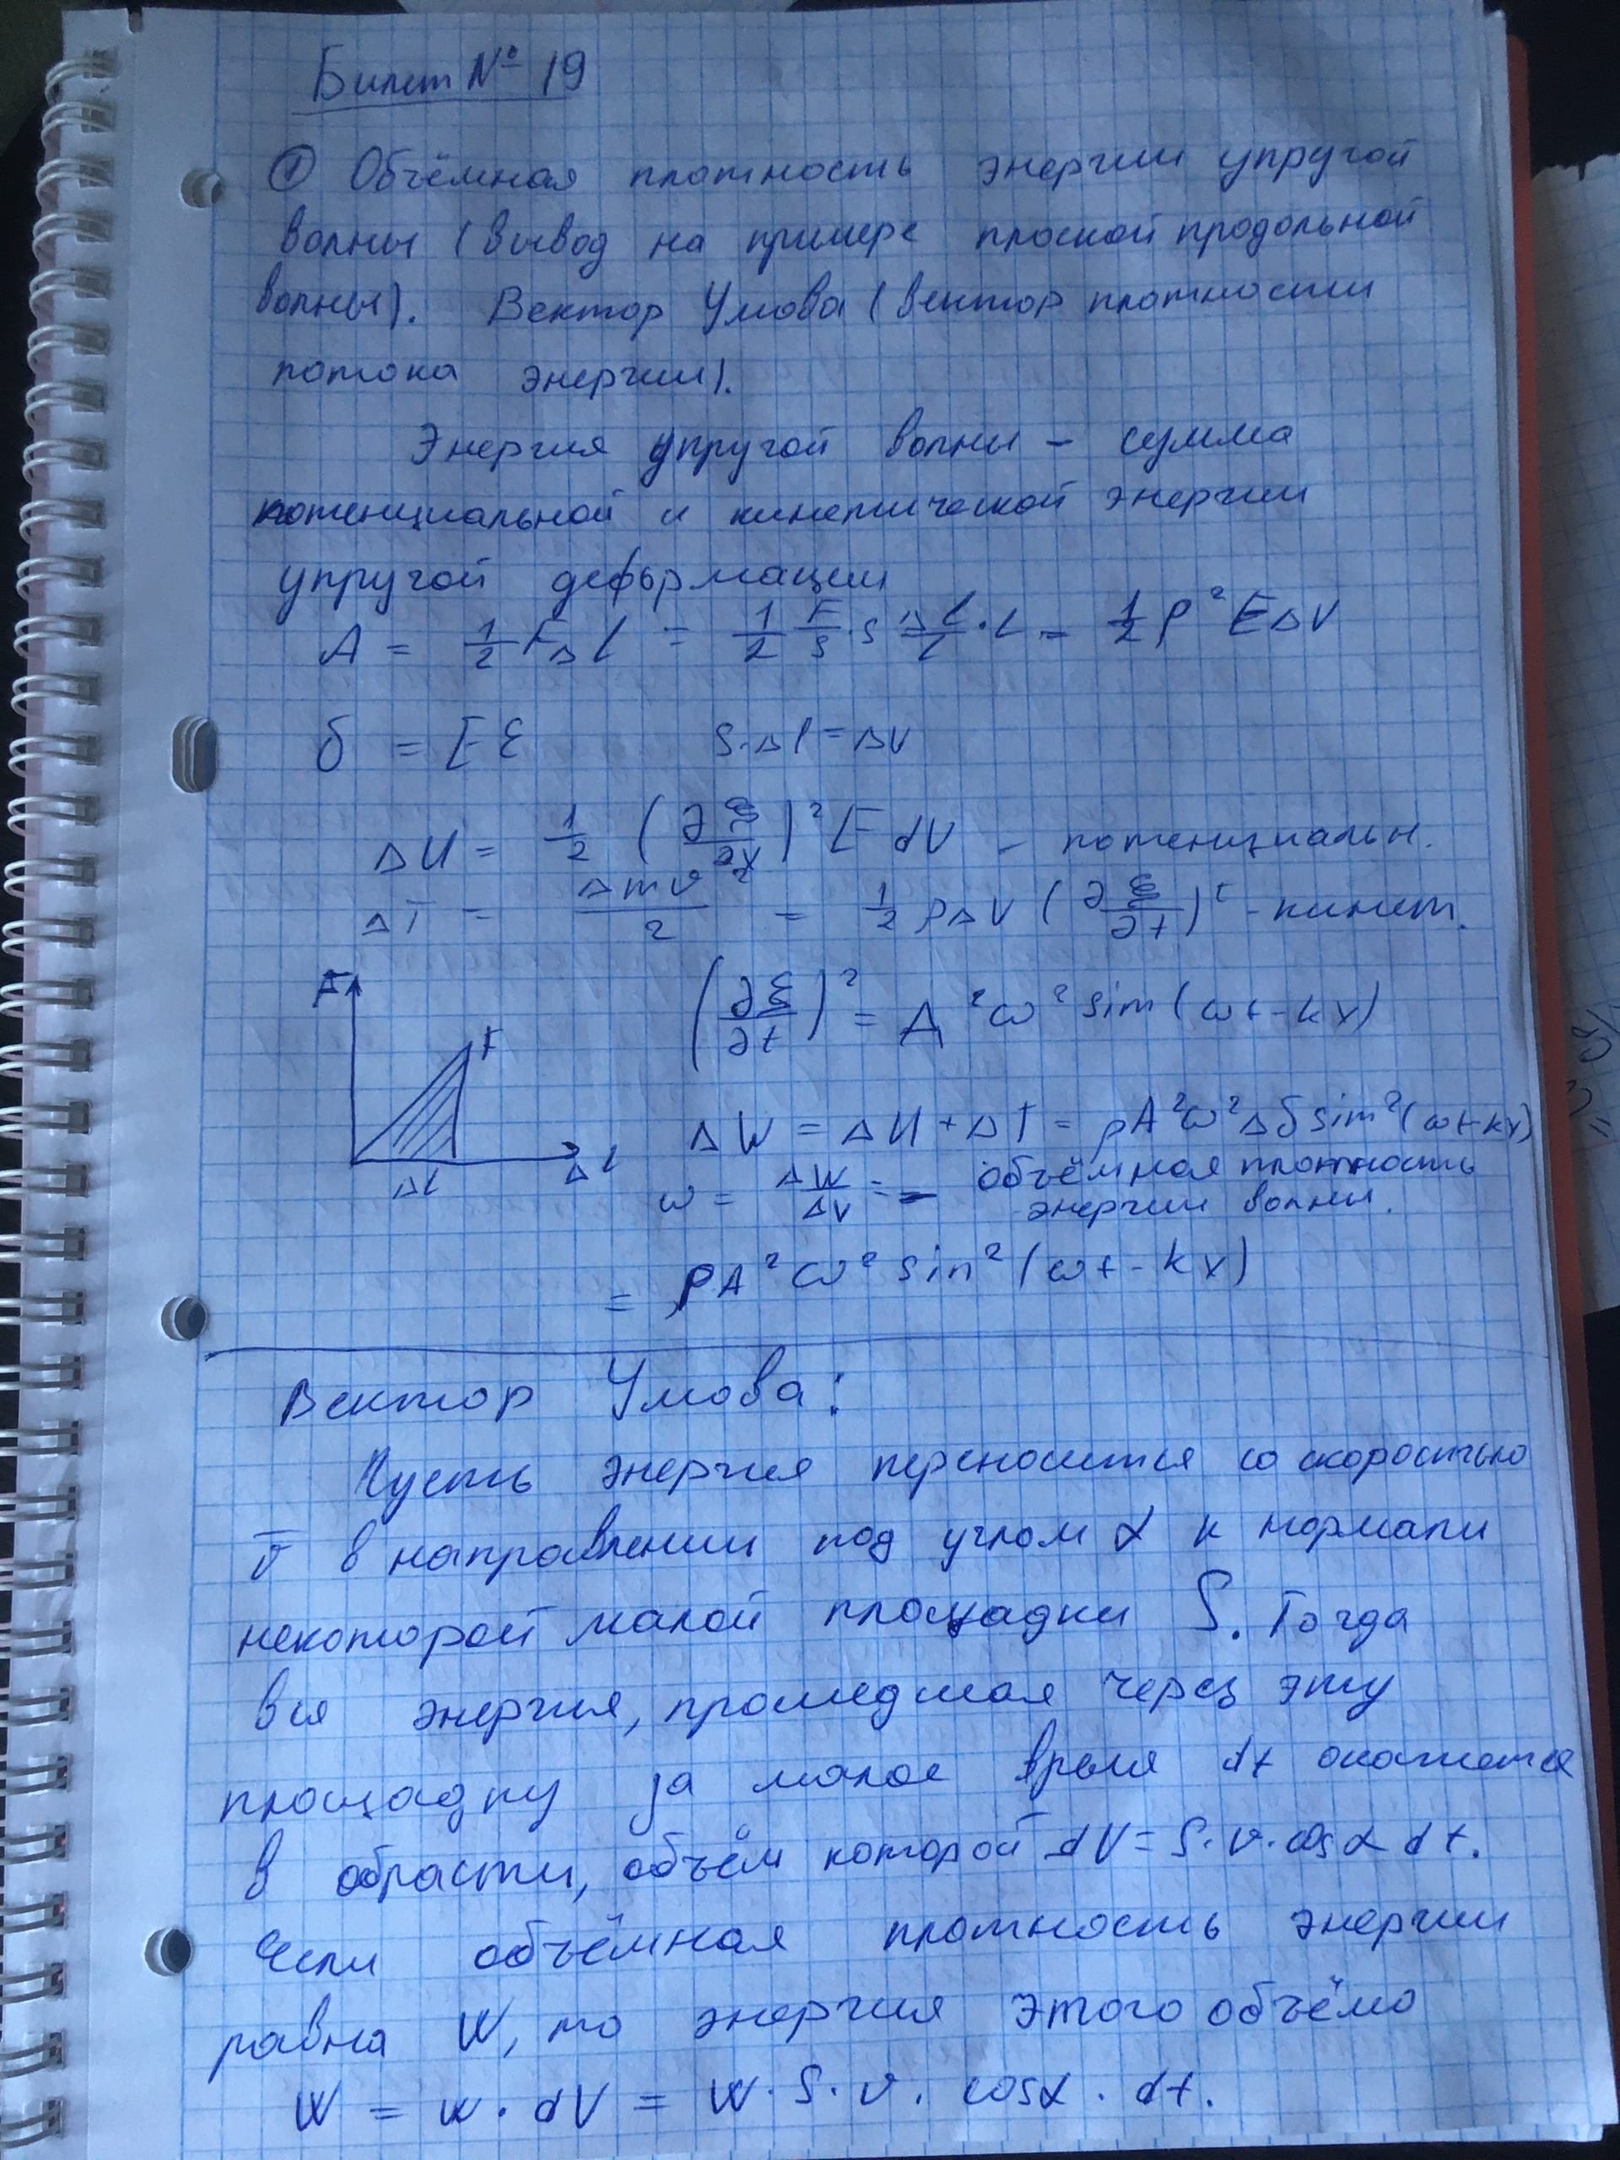 Билет № 19
① Объёмная плотность энергии упругой
волны (вывод на примере плоской продольной
волны). Вектор Умова (вектор плотности
потока энергии).
Энергия упругой волны – сумма
потенциальной и кинетической энергии
упругой деформации
A = 1/2 FΔl = 1/2 F/S · S Δl/l · l = 1/2 ρ² E ΔV
б = Eε S·Δl = ΔV
ΔU = 1/2 (∂ξ/∂x)² E dV – потенциальн.
ΔT = Δmv²/2 = 1/2 ρΔV (∂ξ/∂t)² – кинет.
F
F
(∂ξ/∂t)² = A²ω² sin(ωt-kx)
Δl
Δl
ΔW = ΔU + ΔT = ρA²ω²Δб sin²(ωt-kx)
ω = ΔW/ΔV = – объёмная плотность
энергии волны.
= ρA²ω² sin²(ωt-kx)
Вектор Умова:
Пусть энергия переносится со скоростью
v̄ в направлении под углом α к нормали
некоторой малой площадки S. Тогда
вся энергия, прошедшая через эту
площадку за малое время dt окажется
в области, объём которой dV = S·v·cosα dt.
Если объёмная плотность энергии
равна W, то энергия этого объёма
W = w·dV = W·S·v·cosα·dt.